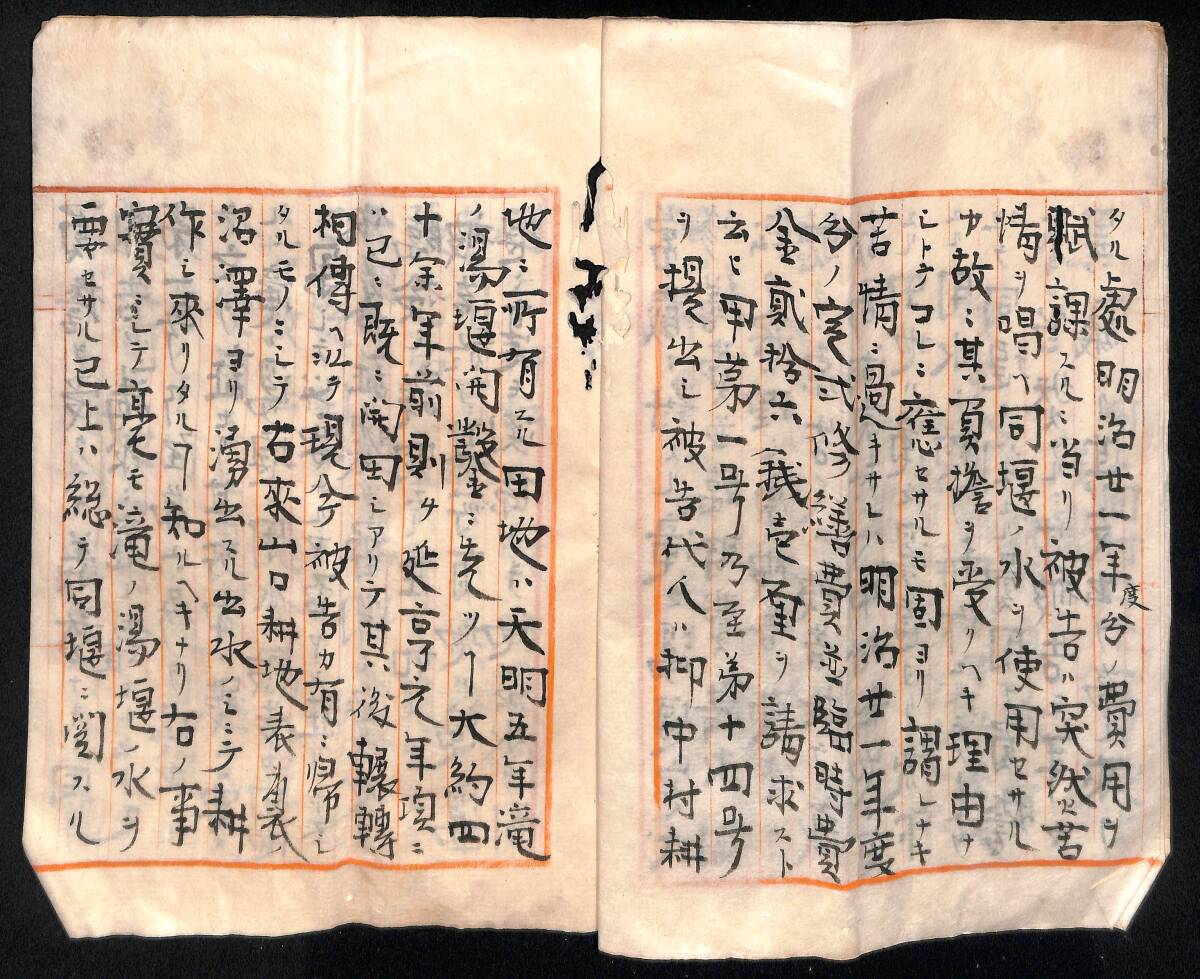 タル處明治廿一年度分ノ費用ヲ
賦課スルニ当リ被告ハ突然苦
情ヲ唱ヘ同堰ノ水ヲ使用セサル
カ故ニ其負擔ヲ受クヘキ理由ナ
シトテコレニ應セサルモ固ヨリ謂レナキ
苦情ニ過キサレハ明治廿一年度
分ノ定式修繕費並臨時費
金貳拾六錢壱厘ヲ請求スト
云ヒ甲第一号乃至第十四号
ヲ提出シ被告代人ハ抑中村耕
地ニ所有スル田地ハ天明五年滝
ノ湯堰開鑿ニ先ツヿ大約四
十余年前則チ延享元年項ニ
ハ已ニ既ニ開田シアリテ其後輾轉
相傳ヘ以テ現今被告カ有ニ帰シ
タルモノニシテ古來山口耕地表
沼澤ヨリ湧出スル出水ノミニテ耕
作シ來リタルヿ知ルヘキナリ右ノ事
實ニシテ毫モ滝ノ湯堰ノ水ヲ
要セサル已上ハ総テ同堰ニ関スル